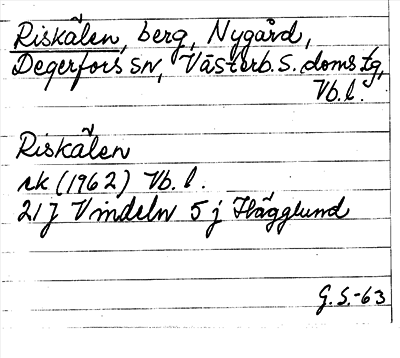 Riskålen, berg, Nygård,
Degerfors sn, Västerb. s. doms tg,
Vb. l.
Riskålen
rk (1962) Vb. l.
21 J Vindeln 5 j Hägglund
G. S.-63